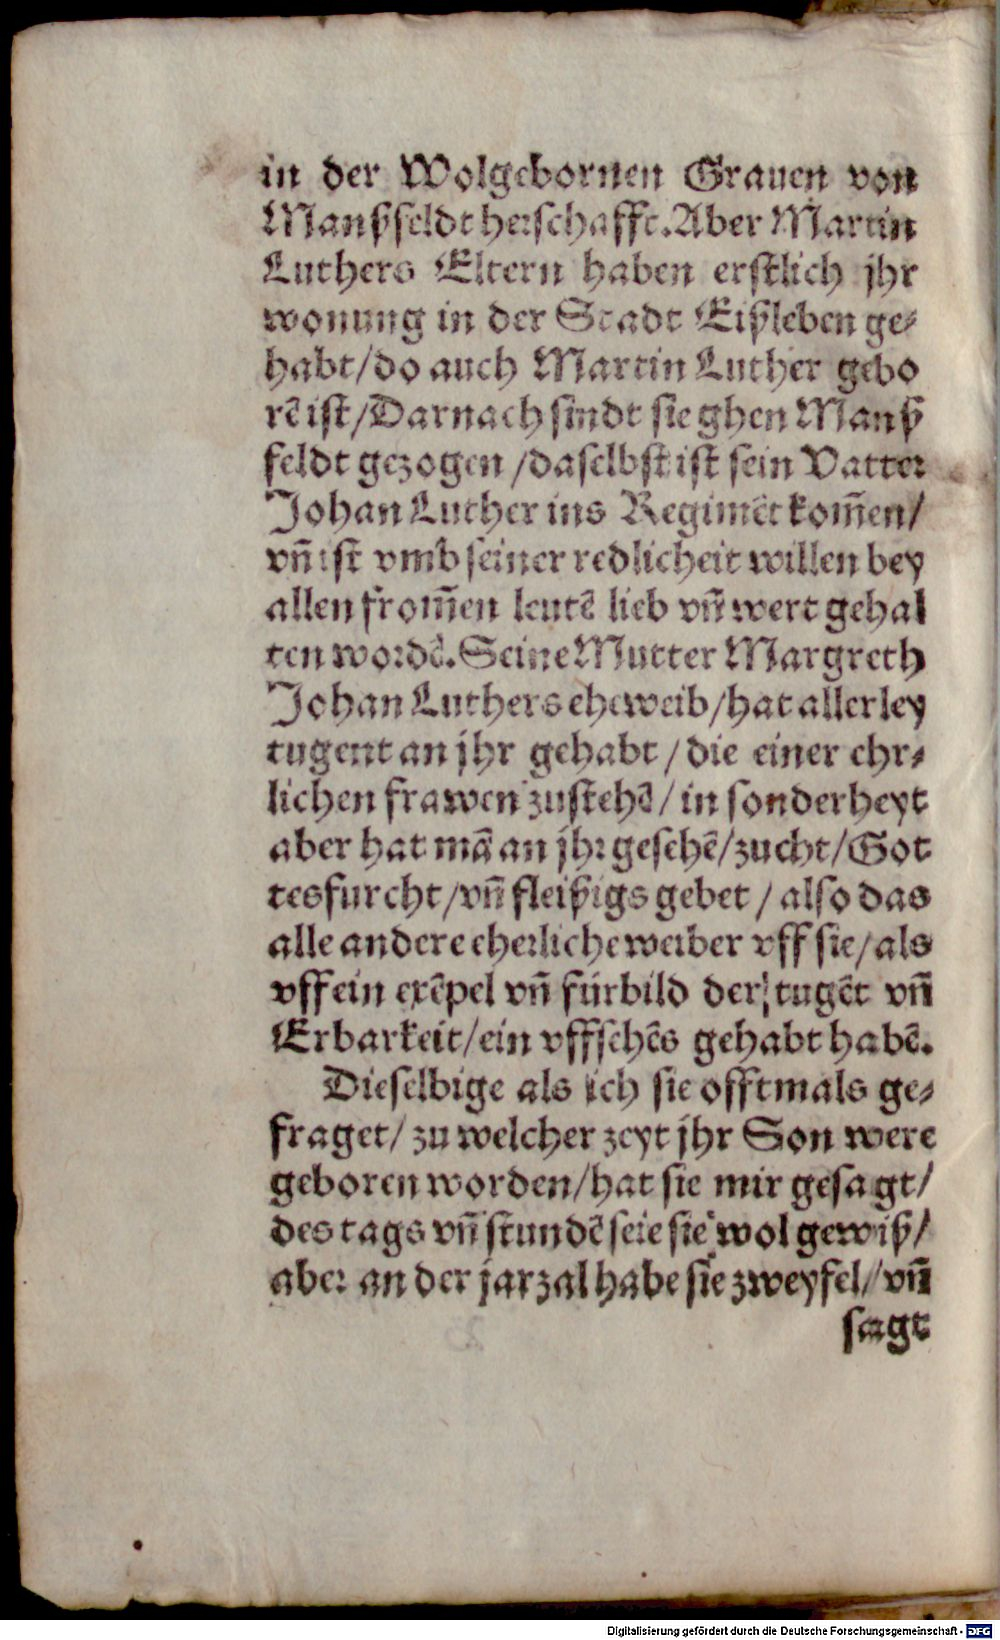 in der Wolgebornen Grauen von
Manßfeldt herschafft. Aber Martin
Luthers Eltern haben erstlich jhr
wonung in der Stadt Eißleben ge⸗
habt/ do auch Martin Luther gebo
rē ist/ Darnach sindt sie ghen Manß
feldt gezogen/ daselbst ist sein Vatter
Johan Luther ins Regimēt kom̄en/
vn̄ ist vmb seiner redlicheit willen bey
allen from̄en leutē lieb vn̄ wert gehal
ten wordē. Seine Mutter Margreth
Johan Luthers eheweib/ hat allerley
tugent an jhr gehabt/ die einer ehr⸗
lichen frawen zustehē/ in sonderheyt
aber hat mā an jhr gesehē/ zucht/ Got
tesfurcht/ vn̄ fleißigs gebet/ also das
alle andere eherliche weiber vff sie/ als
vff ein exēpel vn̄ fürbild der tugēt vn̄
Erbarkeit/ ein vffsehēs gehabt habē.
Dieselbige als ich sie offtmals ge⸗
fraget/ zu welcher zeyt jhr Son were
geboren worden/ hat sie mir gesagt/
des tags vn̄ stundē seie sie wol gewiß/
aber an der jarzal habe sie zweyfel/ vn̄
sagt
Digitalisierung gefördert durch die Deutsche Forschungsgemeinschaft - DFG